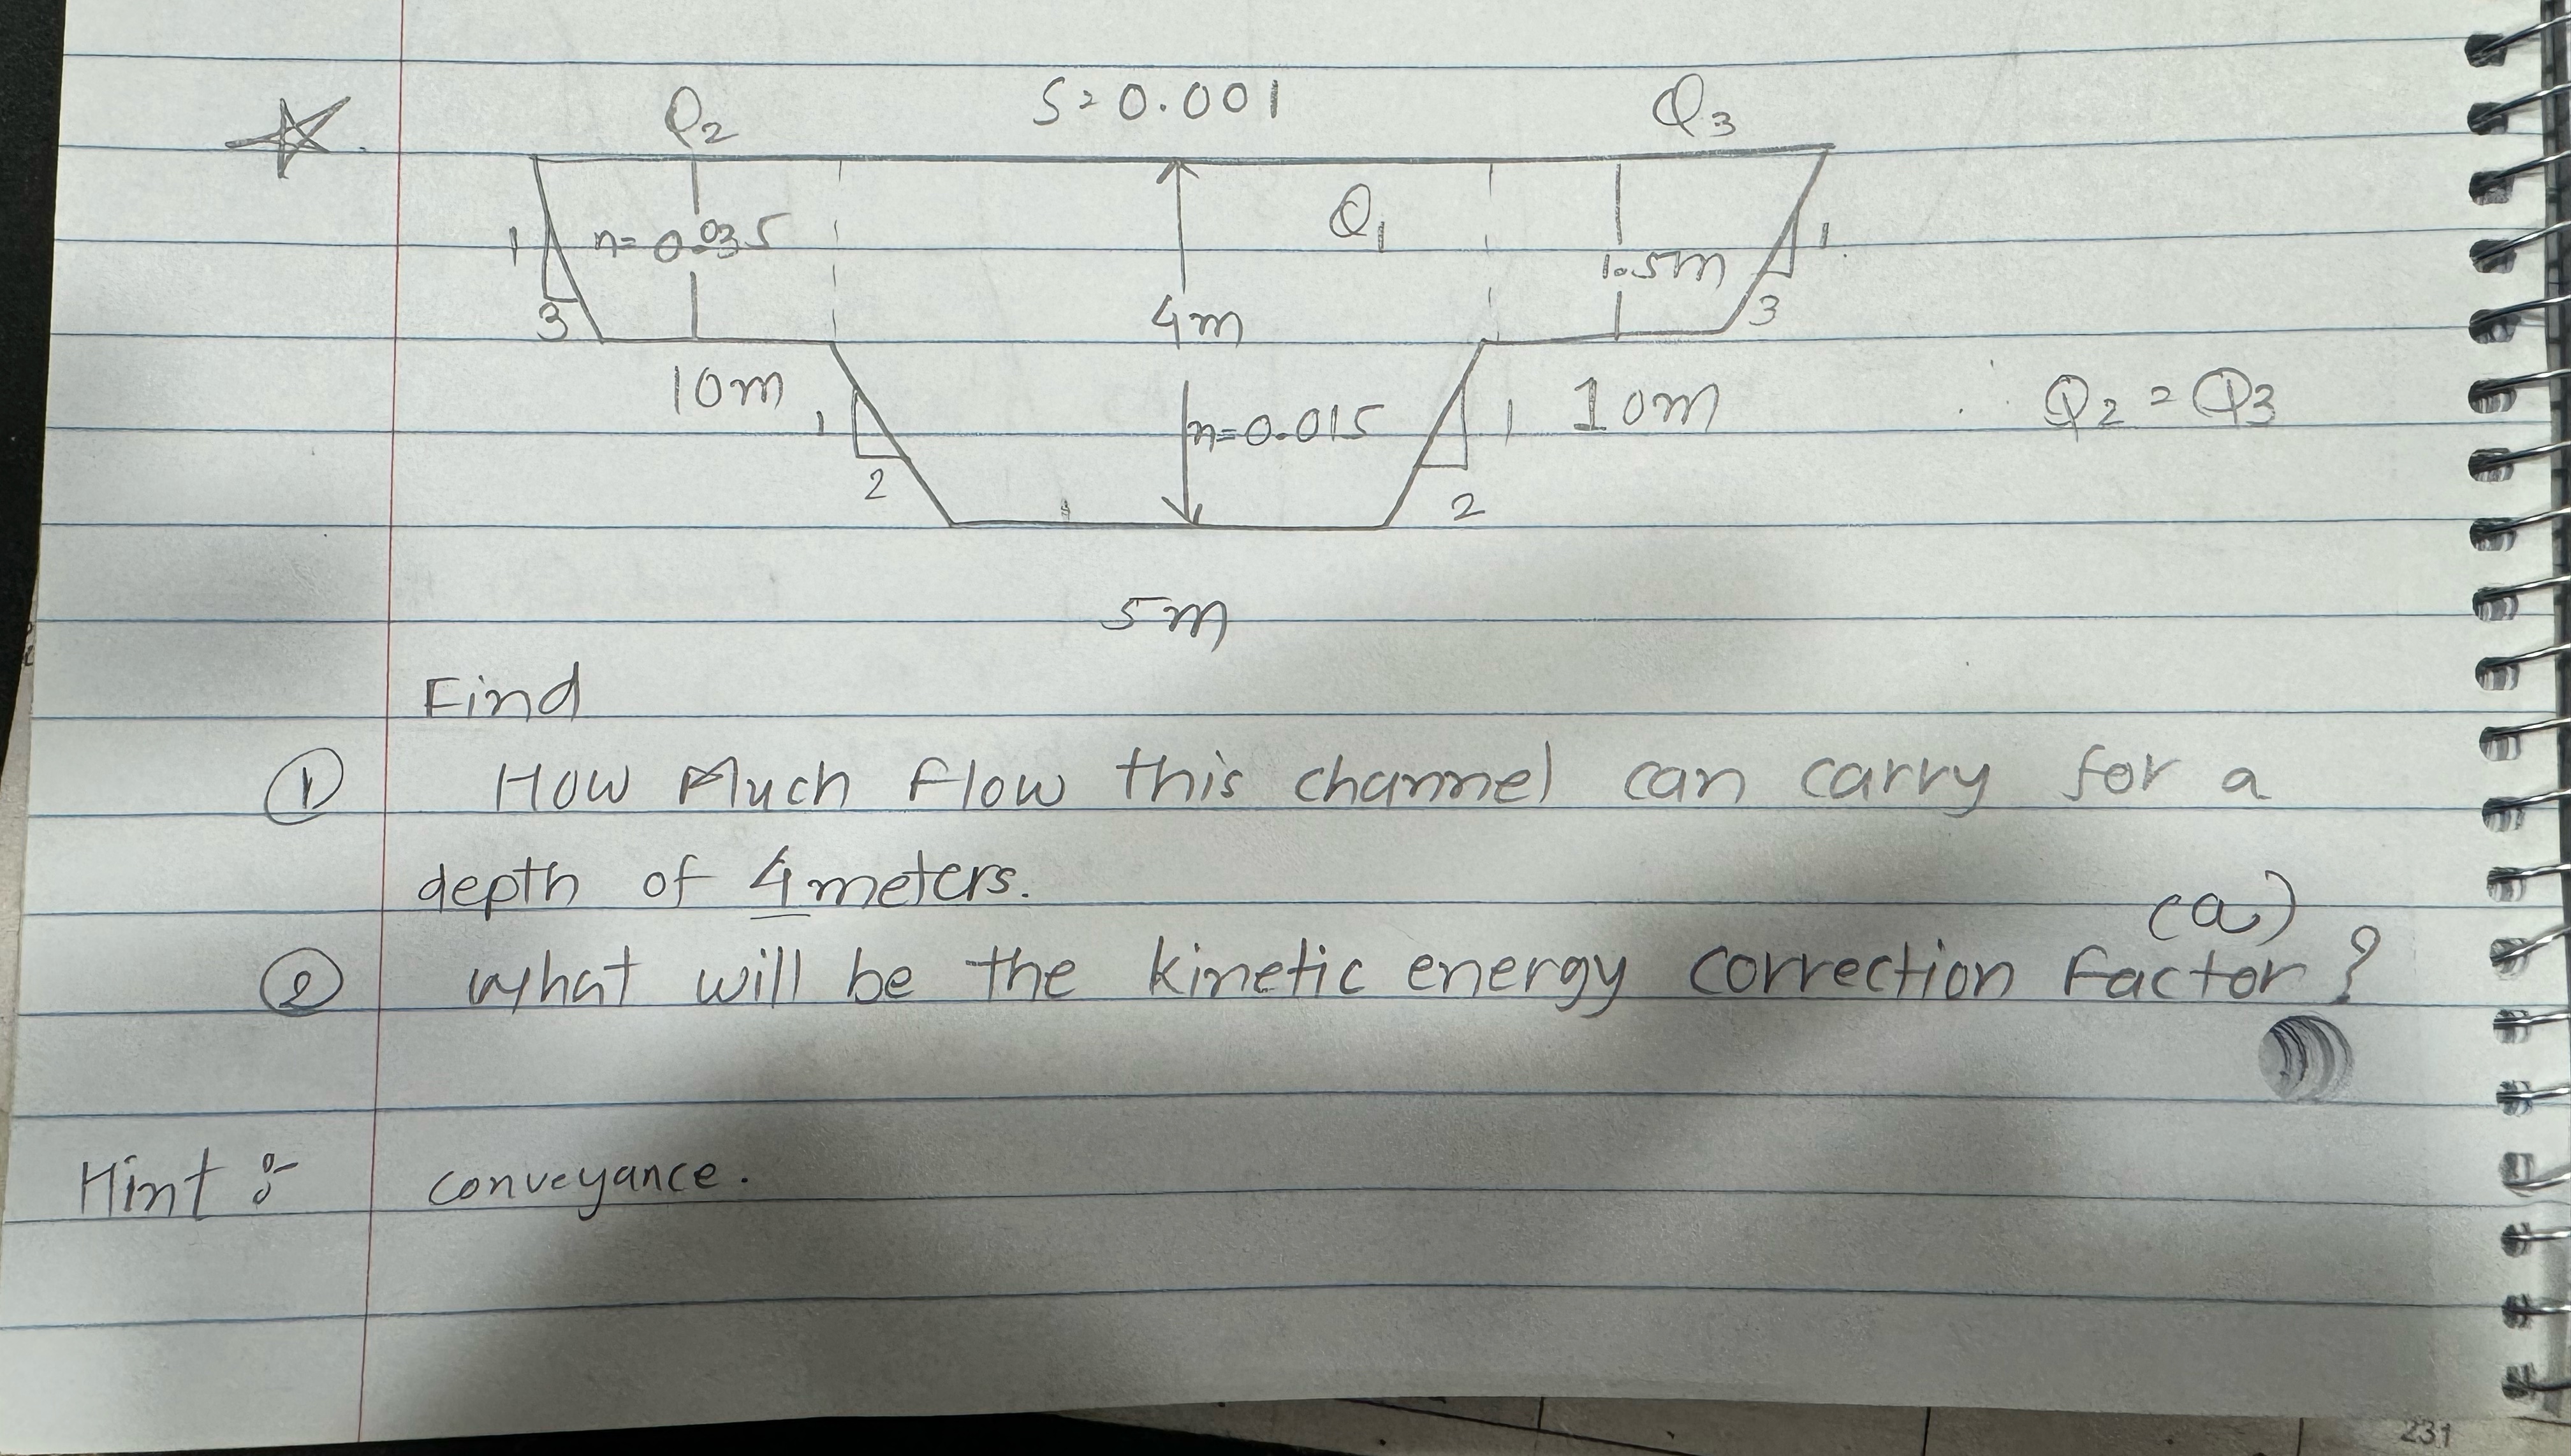 S=0.001
Q2
Q3
Q1
1
n=0.035
3
1.5m
1
3
4m
10m
1
2
n=0.015
1
2
10m
Q2 = Q3
5m
Find
① How Much flow this channel can carry for a
depth of 4 meters.
(a)
② what will be the kinetic energy correction factor?
Hint :- conveyance.
231